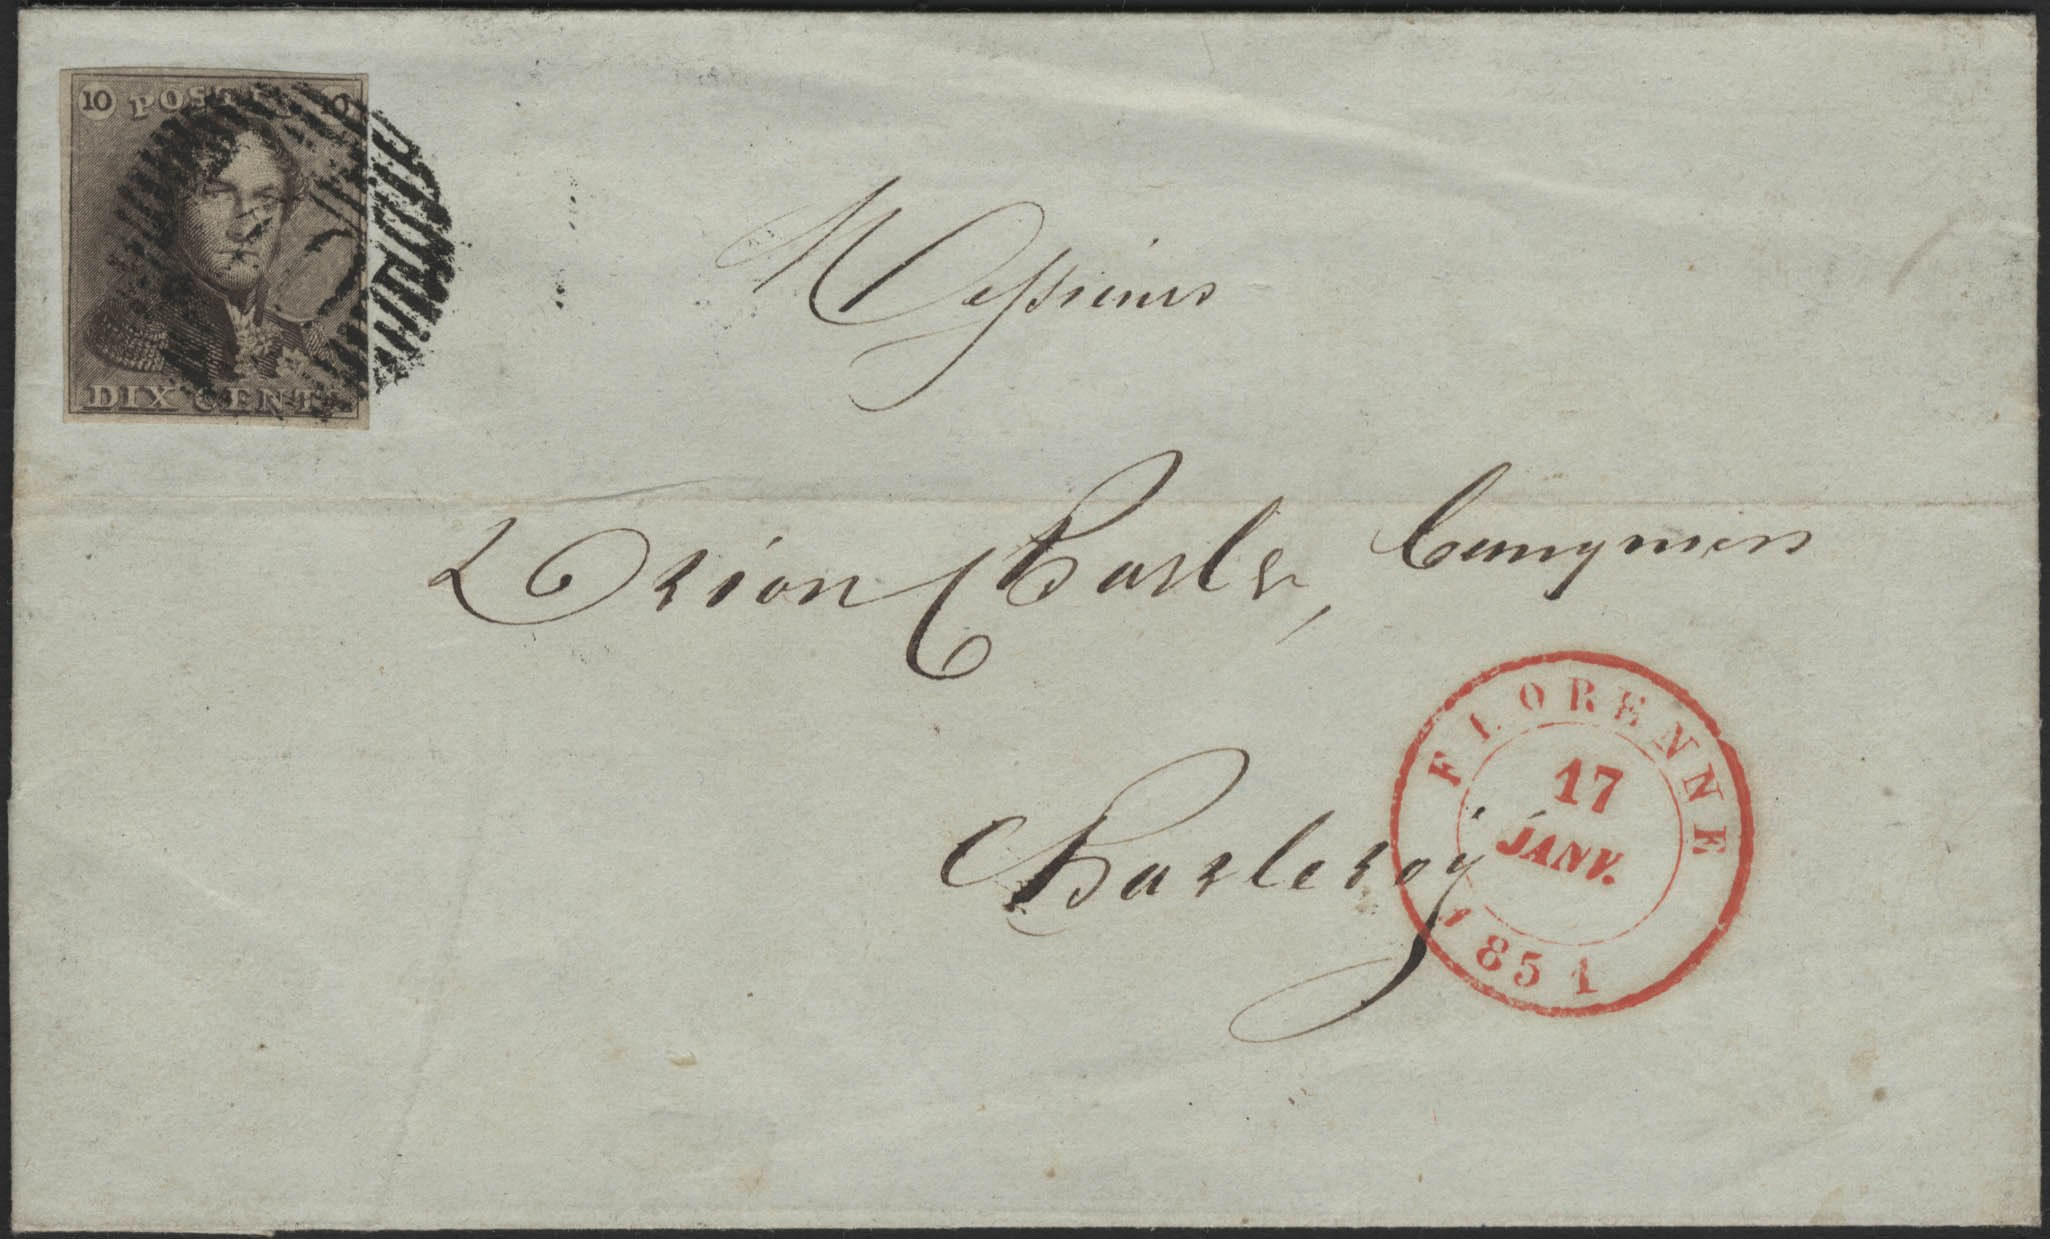 10 POSTES 10
DIX CENT
Messieurs
Drion Charles,
Charleroy
FLORENNE
17
JANV.
1851